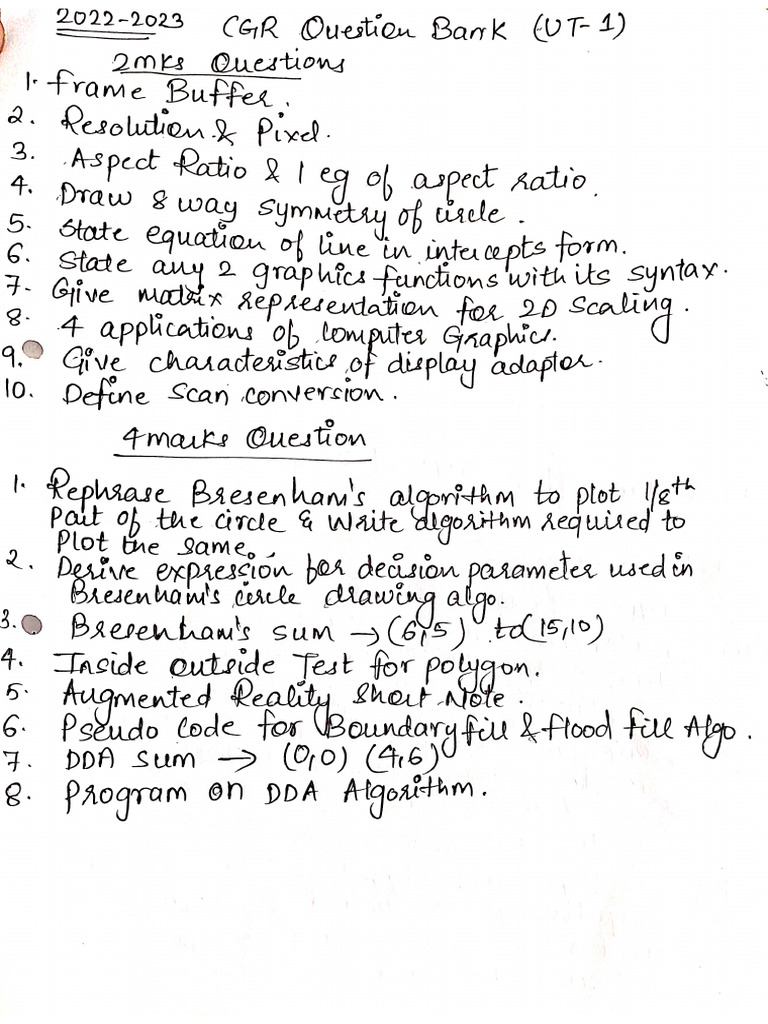 2022-2023 CGR Question Bank (UT-1)
2mks Questions
1. Frame Buffer.
2. Resolution & Pixel.
3. Aspect Ratio & 1 eg of aspect ratio.
4. Draw 8 way symmetry of circle.
5. State equation of line in intercepts form.
6. State any 2 graphics functions with its syntax.
7. Give matrix representation for 2D Scaling.
8. 4 applications of Computer Graphics.
9. Give characteristics of display adaptor.
10. Define Scan conversion.
4marks Question
1. Rephrase Bresenham's algorithm to plot 1/8th
Part of the circle & Write algorithm required to
Plot the same.
2. Derive expression for decision parameter used in
Bresenham's circle drawing algo.
3. Bresenham's sum → (6,5) to (15,10)
4. Inside outside Test for polygon.
5. Augmented Reality Short Note.
6. Pseudo code for Boundary fill & flood fill Algo.
7. DDA sum → (0,0) (4,6)
8. Program on DDA Algorithm.